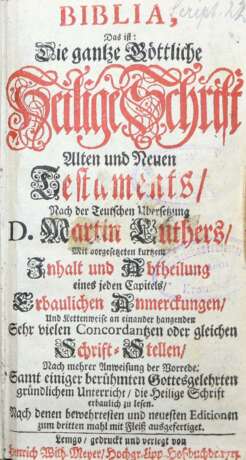 BIBLIA,
Das ist:
Die gantze Göttliche
Heilige Schrift
Alten und Neuen
Testaments/
Nach der Teutschen Übersetzung
D. Martin Luthers/
Mit vorgesetzten kurtzen
Inhalt und Abtheilung
eines jeden Capitels/
Erbaulichen Anmerckungen/
Und Kettenweise an einander hangenden
Sehr vielen Concordantzen oder gleichen
Schrift-Stellen/
Nach mehrer Anweisung der Vorrede.
Samt einiger berühmten Gottesgelehrten
gründlichem Unterricht/ die Heilige Schrift
erbaulich zu lesen.
Nach denen bewehresten und neuesten Editionen
zum dritten mahl mit Fleiß ausgefertiget.
Lemgo/ gedruckt und verlegt von
Heinrich Wilh. Meyer/ Hochgr. Lipp. Hofbuchdr.